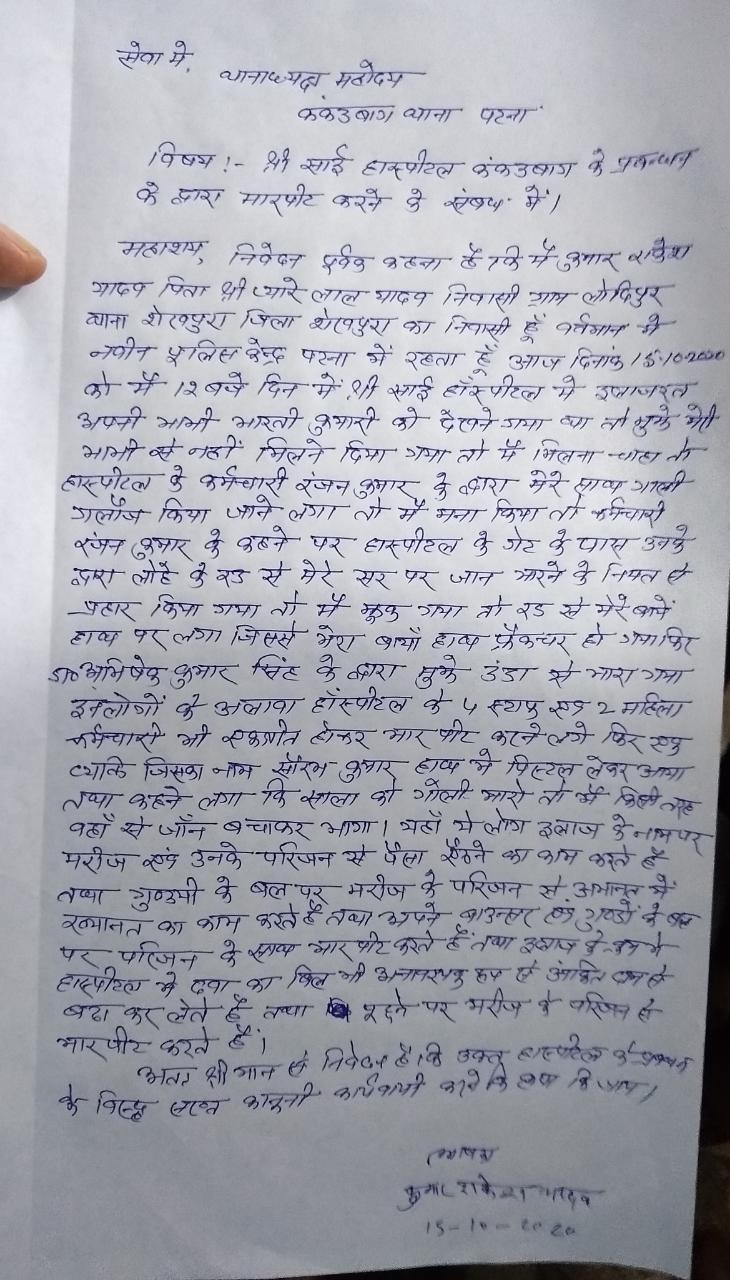 सेवा मे,
थानाध्यक्ष महोदय
कंकड़बाग थाना पटना
विषय :- श्री साई हास्पीटल कंकड़बाग के प्रबन्धन
के द्वारा मारपीट करने के संबंध में।
महाशय, निवेदन पूर्वक कहना है कि मैं कुमार राकेश
यादव पिता श्री प्यारे लाल यादव निवासी ग्राम लोदिपुर
थाना शेखपुरा जिला शेखपुरा का निवासी हूँ वर्तमान मे
नवीन पुलिस केन्द्र पटना में रहता हूँ आज दिनांक 15-10-2020
को मैं 12 बजे दिन में श्री साई हॉस्पीटल मे इलाजरत
अपनी भाभी भारती कुमारी को देखने गया था तो मुझे मेरी
भाभी से नहीं मिलने दिया गया तो मैं मिलना चाहा तो
हास्पीटल के कर्मचारी रंजन कुमार के द्वारा मेरे साथ गाली
गलौज किया जाने लगा तो मैं मना किया तो कर्मचारी
रंजन कुमार के कहने पर हास्पीटल के गेट के पास उनके
द्वारा लोहे के रड से मेरे सर पर जान मारने के नियत से
प्रहार किया गया तो मैं झुक गया तो रड से मेरे बायें
हाथ पर लगा जिससे मेरा बायाँ हाथ फ्रैक्चर हो गया फिर
डा० अभिषेक कुमार सिंह के द्वारा मुझे डंडा से मारा गया
इनलोगों के अलावा हॉस्पीटल के 4 स्टाफ एवं 2 महिला
कर्मचारी भी एकत्रीत होकर मारपीट करने लगे फिर एक
व्यक्ति जिसका नाम सौरभ कुमार हाथ मे पिस्टल लेकर आया
तथा कहने लगा कि साला को गोली मारो तो मैं किसी तरह
वहाँ से जाँन बचाकर भागा। यहाँ ये लोग इलाज के नाम पर
मरीज एवं उनके परिजन से पैसा ऐंठने का काम करते हैं
तथा गुण्डागर्दी के बल पर मरीज के परिजन से अमानत में
ख्यानत का काम करते हैं तथा अपने बाउन्सर एवं गुण्डों के बल
पर परिजन के साथ मारपीट करते हैं तथा इलाज के क्रम मे
हास्पीटल मे दवा का बिल भी अनावश्यक रूप से अंकित दाम से
बढा कर लेते हैं तथा पूछने पर मरीज के परिजन से
मारपीट करते हैं।
अतः श्री मान से निवेदन है कि उक्त हास्पीटल के प्रबंधक
के विरूद्ध सख्त कानूनी कार्यवायी करने कि कृपा कि जाय।
कुमार राकेश यादव
15-10-2020